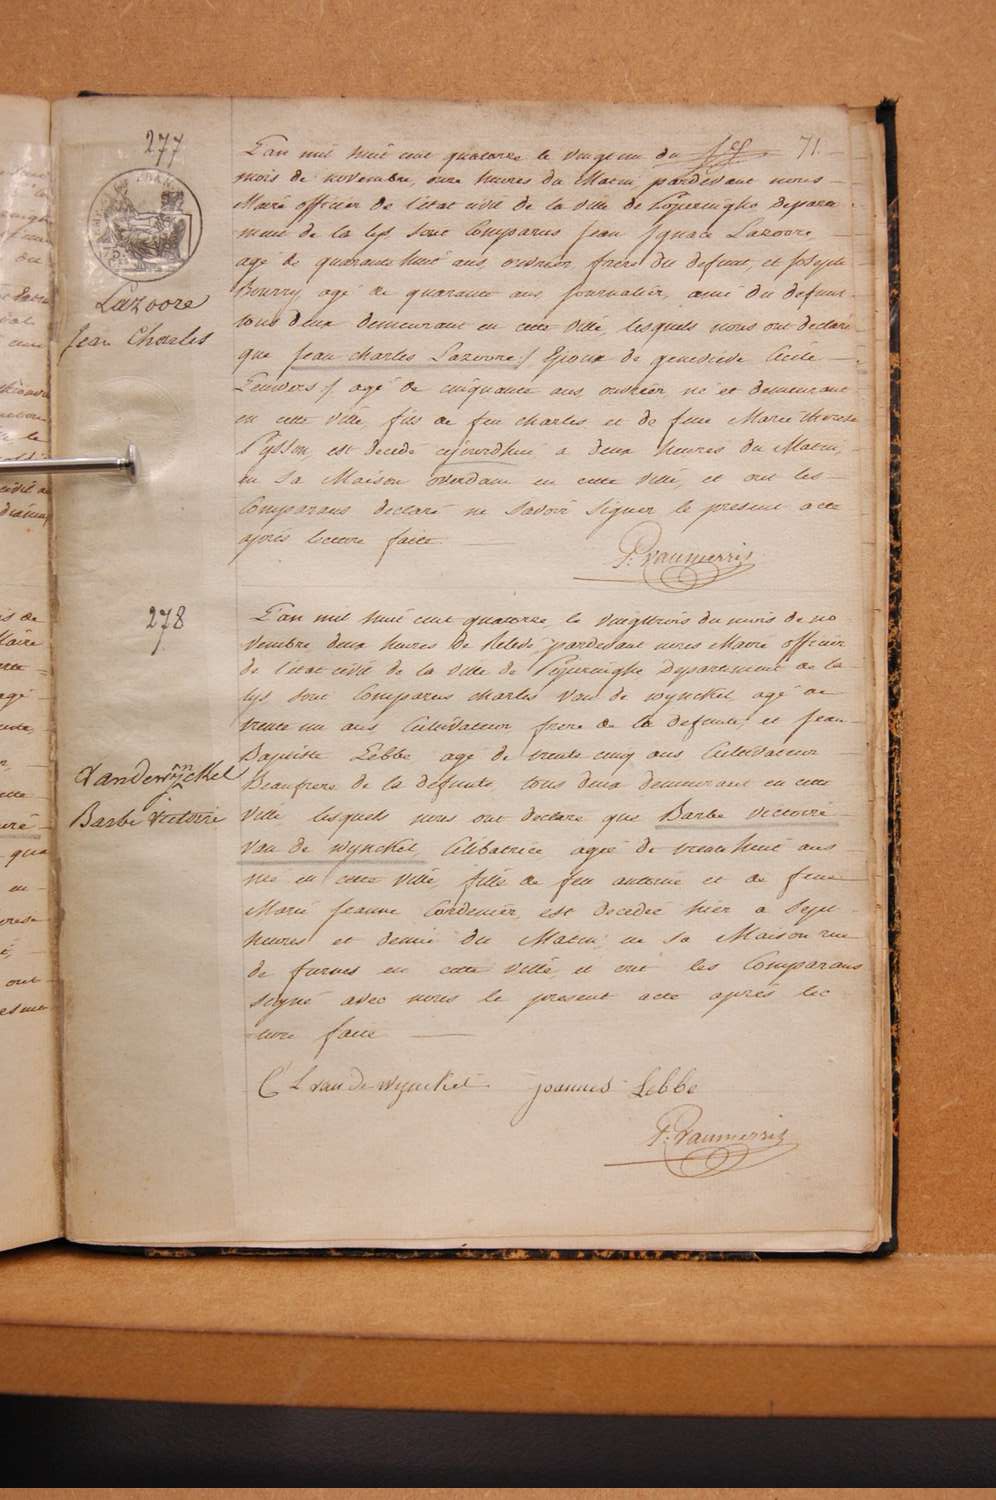 277
Lazoore
Jean Charles
71.
L'an mil huit cent quatorze le vingt un du
mois de novembre, onze heures du Matin, pardevant nous
Maire officier de l'état civil de la ville de Poperinghe departe
ment de la lys sont Comparus Jean Ignace Lazoore
agé de quarante huit ans, ouvrier, frere du defunt, et Joseph
Bourry, agé de quarante ans, journalier, ami du defunt
tous deux demeurant en cette ville, lesquels nous ont declaré
que Jean charles Lazoore :/ Epoux de genevieve Cecile
Leuwers :/ agé de cinquante ans, ouvrier né et demeurant
en cette ville, fils de feu charles et de feue Marie therese
est decedé cejourdhui à deux heures du Matin,
en sa Maison overdam en cette ville, et ont les
Comparans declaré ne savoir signer le present acte
après lecture faite
P. Vanmerris
278
Vandewynckel
Barbe Victoire
L'an mil huit cent quatorze, le vingttrois du mois de no
vembre deux heures de Relevée, pardevant nous Maire officier
de l'état civil de la ville de Poperinghe Departement de la
lys sont Comparus charles Van de wynckel, agé de
trente un ans Cultivateur frere de la defunte et Jean
Baptiste Lebbe agé de trente cinq ans Cultivateur
Beaufrere de la défunte, tous deux demeurant en cette
ville lesquels nous ont declare que Barbe victoire
Van de wynckel, Célibatrice agée de trente huit ans
née en cette ville, fille de feu antoine et de feue
Marie Jeanne Cordenier, est decedée hier a sept
heures et demie du Matin, en sa Maison rue
de furnes en cette ville et ont les Comparans
signé avec nous le present acte après lec
ture faite
C L van de wynckel joannes Lebbe
P. Vanmerris